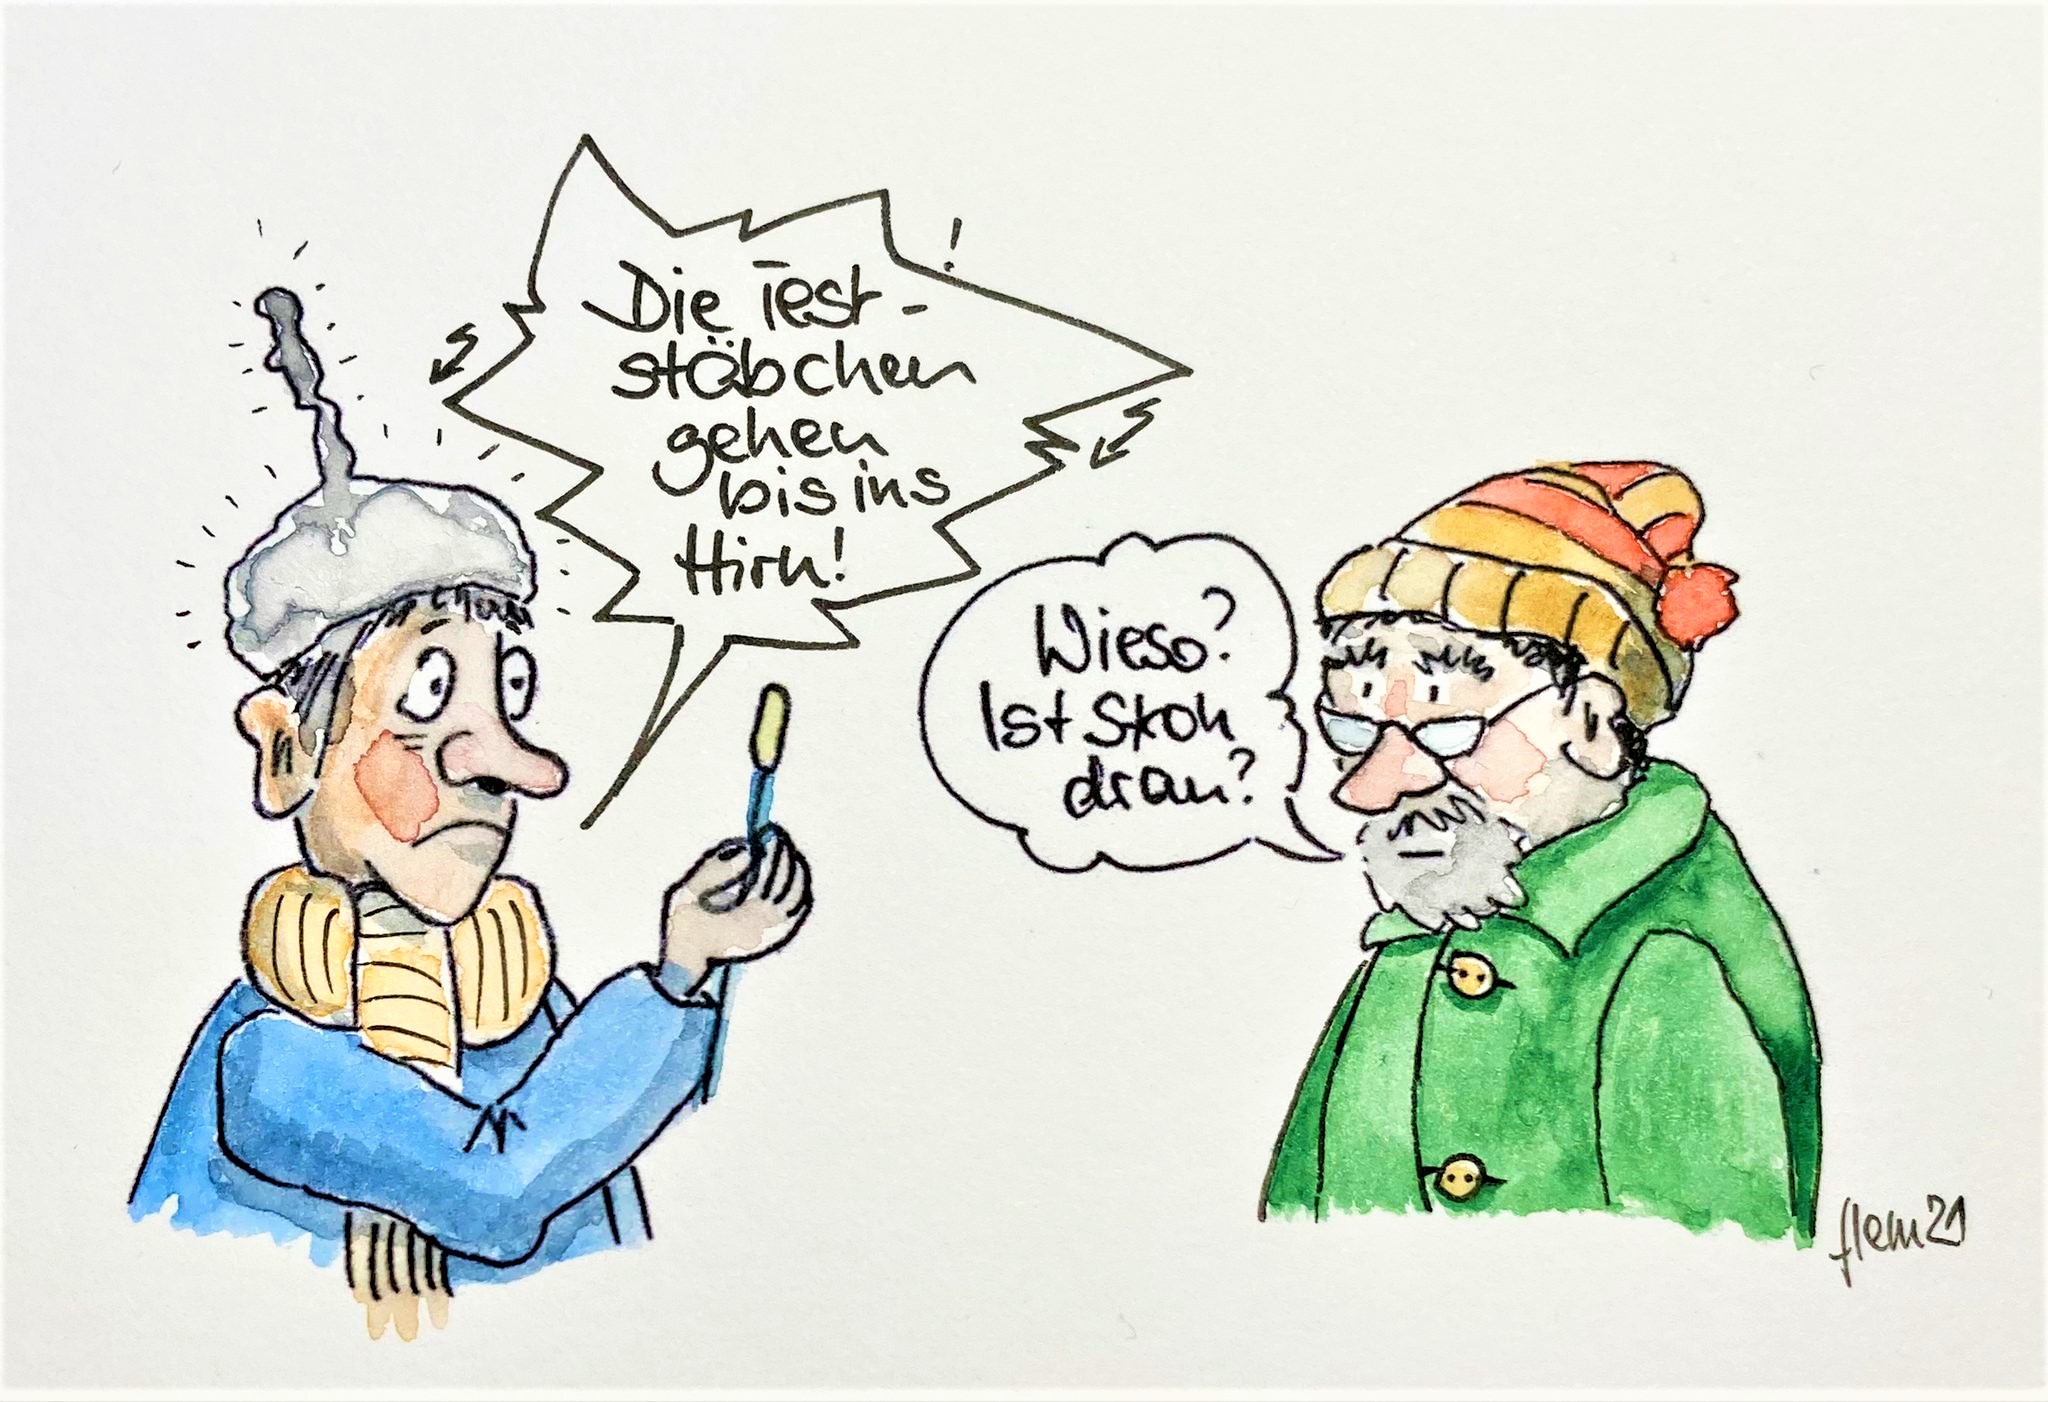 !
Die Test-
stäbchen
gehen
bis ins
Hirn!
Wieso?
Ist Stroh
dran?
flem21